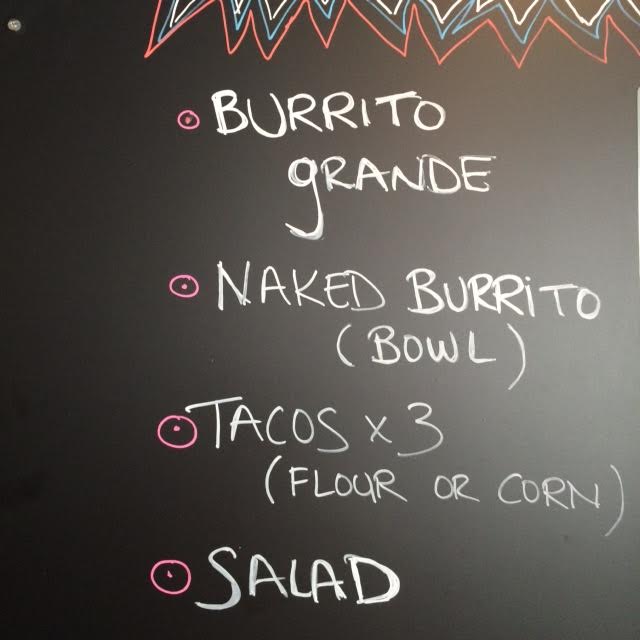 BURRITO
gRANDE
NAKED BURRiTO
(BOWL)
TACOS x 3
(FLOUR OR CORN)
SALAD